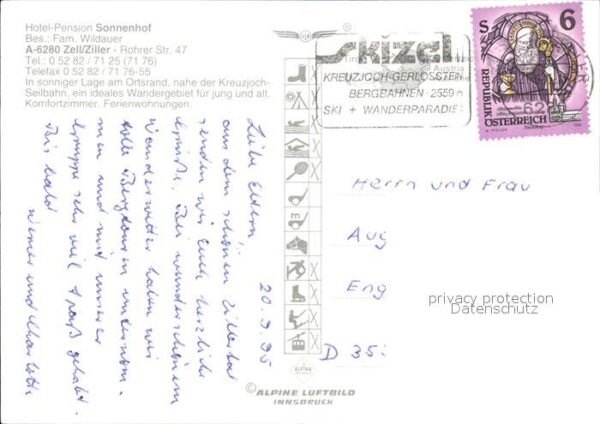 Hotel-Pension Sonnenhof
Bes.: Fam. Wildauer
A-6280 Zell/Ziller - Rohrer Str. 47
Tel.: 0 52 82 / 71 25 (71 76)
Telefax 0 52 82 / 71 76-55
In sonniger Lage am Ortsrand, nahe der Kreuzjoch-
Seilbahn, ein ideales Wandergebiet für jung und alt.
Komfortzimmer. Ferienwohnungen.
skizal
Austria
KREUZJOCH-GERLOSSTEIN
BERGBAHNEN 2559 m
SKI + WANDERPARADIES
S 6
REPUBLIK
ÖSTERREICH
62
20.9.95
Liebe Eltern!
aus dem schönen Zillertal
senden wir Euch herzliche
Grüße. Bei wunderschönem
Wanderwetter haben wir
tolle Bergtouren unternom-
men und mit unserer
Gruppe sehr viel Spaß gehabt.
Bis bald
Werner und
Herrn und Frau
Aug
Eng
D 35
privacy protection
Datenschutz
ALPINA
© ALPINE LUFTBILD
INNSBRUCK